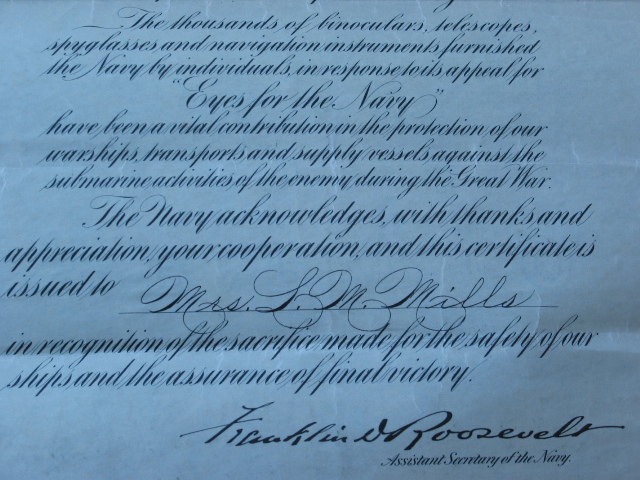 The thousands of binoculars, telescopes,
spyglasses and navigation instruments furnished
the Navy by individuals, in response to its appeal for
"Eyes for the Navy"
have been a vital contribution in the protection of our
warships, transports and supply vessels against the
submarine activities of the enemy during the Great War.
The Navy acknowledges, with thanks and
appreciation, your cooperation, and this certificate is
issued to Mrs. L. M. Mills
in recognition of the sacrifice made for the safety of our
ships and the assurance of final victory.
Franklin D Roosevelt
Assistant Secretary of the Navy.